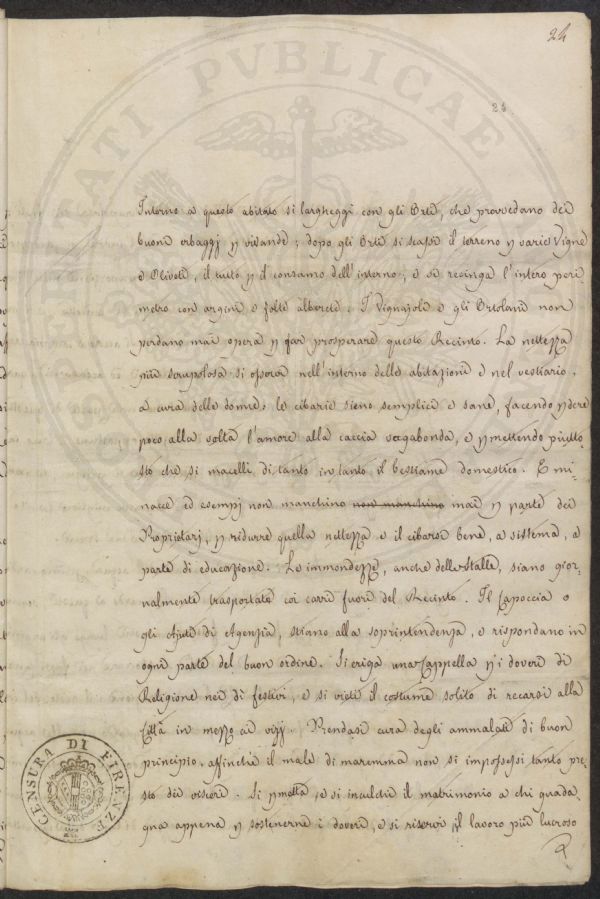 24
24
Intorno a questo abitato si largheggi con gli Orti, che provvedano dei
buoni erbaggj p vivande; dopo gli Orti si scassi il terreno p varie Vigne
e Oliveti, il tutto p il consumo dell'interno; e si recinga l'intero peri
metro con argini e folti albereti. I Vignajoli e gli Ortolani non
perdano mai opera p far prosperare questo Recinto. La nettezza
più scrupolosa si osservi nell'interno delle abitazioni e nel vestiario,
a cura delle donne: le cibarie sieno semplici e sane, facendo pdere
poco alla volta l'amore alla caccia vagabonda, e pmettendo piutto
sto che si macelli di tanto in tanto il bestiame domestico. E mi-
nacce ed esempj non manchino non manchino mai p parte dei
Proprietarj, p ridurre quella nettezza e il cibarsi bene, a sistema, a
parte di educazione. Le immondezze, anche delle stalle, siano gior-
nalmente trasportate coi carri fuori del Recinto. Il Capoccia o
gli Ajuti di Agenzia, stiano alla soprintendenza, e rispondano in
ogni parte del buon ordine. Si eriga una Cappella p i doveri di
Religione nei dì festivi, e si vieti il costume solito di recarsi alla
Città in mezzo ai vizj. Prendasi cura degli ammalati di buon
principio, affinchè il male di maremma non si impossessi tanto pre
sto dei visceri. Si pmetta, e si inculchi il matrimonio a chi guada-
gna appena p sostenerne i doveri, e si riservi il lavoro più lucroso
CENSURA DI FIRENZE